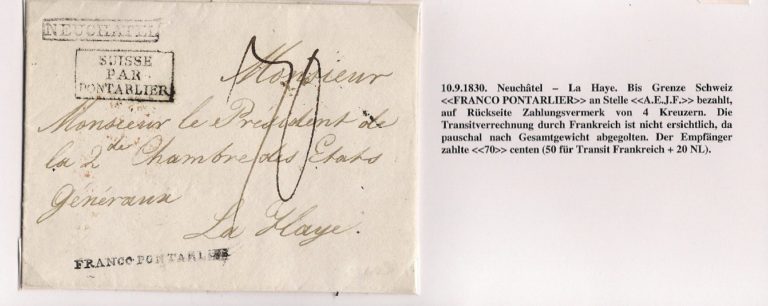 NEUCHATEL
SUISSE
PAR
PONTARLIER
70
Monsieur
Monsieur le Président de
la 2de Chambre des Etats
Généraux
La Haye.
FRANCO PONTARLIER
10.9.1830. Neuchâtel – La Haye. Bis Grenze Schweiz
<<FRANCO PONTARLIER>> an Stelle <<A.E.J.F.>> bezahlt,
auf Rückseite Zahlungsvermerk von 4 Kreuzern. Die
Transitverrechnung durch Frankreich ist nicht ersichtlich, da
pauschal nach Gesamtgewicht abgegolten. Der Empfänger
zahlte <<70>> centen (50 für Transit Frankreich + 20 NL).